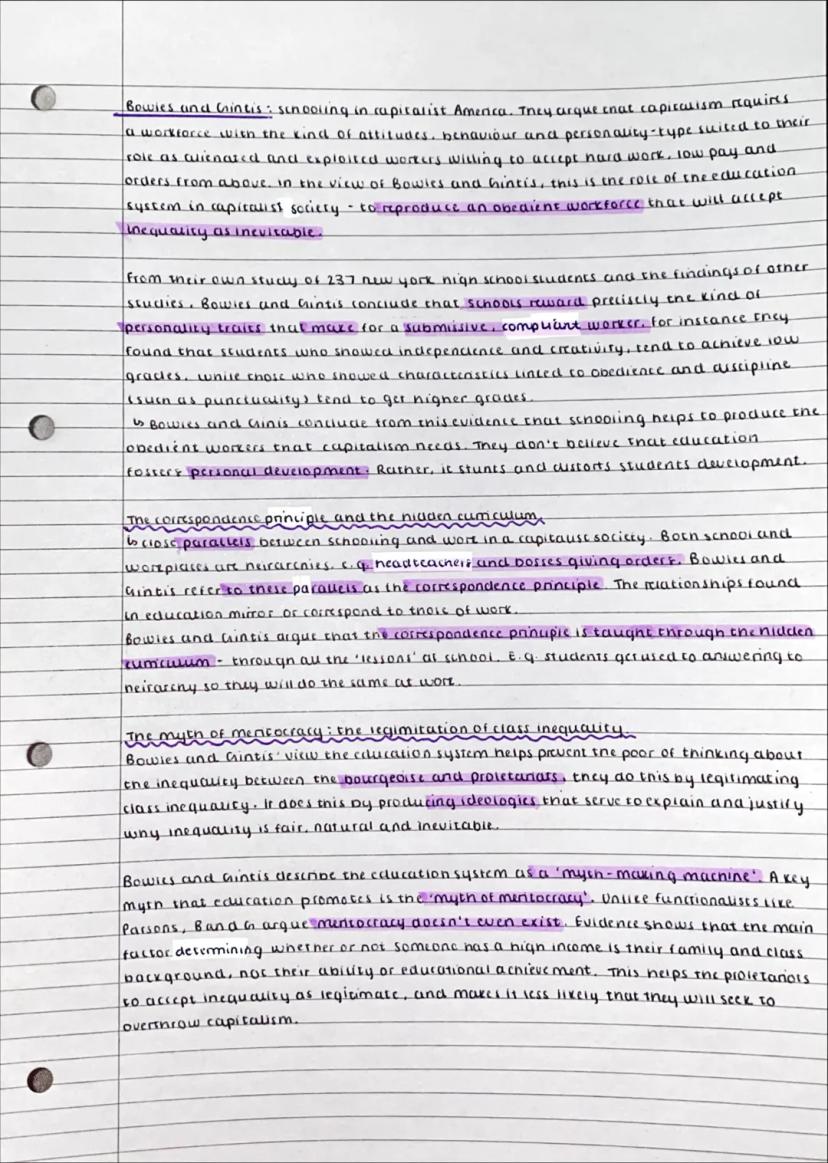 Bowles and Gintis: schooling in capitalist America. They argue that capitalism requires
a workforce with the kind of attitudes, behaviour and personality-type suited to their
role as alienated and exploited workers willing to accept hard work, low pay and
orders from above. In the view of Bowles and Gintis, this is the role of the education
system in capitalist society - to reproduce an obedient workforce that will accept
inequality as inevitable.
From their own study of 237 new york high school students and the findings of other
studies, Bowles and Gintis conclude that schools reward precisely the kind of
personality traits that make for a submissive, compliant worker. For instance they
found that students who showed independence and creativity, tend to achieve low
grades, while those who showed characteristics linked to obedience and discipline
(such as punctuality) tend to get higher grades.
↳ Bowles and Ginis conclude from this evidence that schooling helps to produce the
obedient workers that capitalism needs. They don't believe that education
fosters personal development. Rather, it stunts and distorts students development.
The correspondence principle and the hidden curriculum
↳ close parallels between schooling and work in a capitalist society. Both school and
workplaces are heirarchies, e.g. headteachers and bosses giving orders. Bowles and
Gintis refer to these parallels as the correspondence principle. The relationships found
in education mirror or correspond to those of work.
Bowles and Gintis argue that the correspondence principle is taught through the hidden
curriculum - through all the 'lessons' at school. E.g. students get used to answering to
heirarchy so they will do the same at work.
The myth of meritocracy: the legimitation of class inequality
Bowles and Gintis' view the education system helps prevent the poor of thinking about
the inequality between the bourgeoise and proletariats, they do this by legitimating
class inequality. It does this by producing ideologies that serve to explain and justify
why inequality is fair, natural and inevitable.
Bowles and Gintis describe the education system as a 'myth-making machine'. A key
myth that education promotes is the 'myth of meritocracy'. Unlike functionalists like
Parsons, B and G argue meritocracy doesn't even exist. Evidence shows that the main
factor determining whether or not someone has a high income is their family and class
background, not their ability or educational achievement. This helps the proletariats
to accept inequality as legitimate, and makes it less likely that they will seek to
overthrow capitalism.